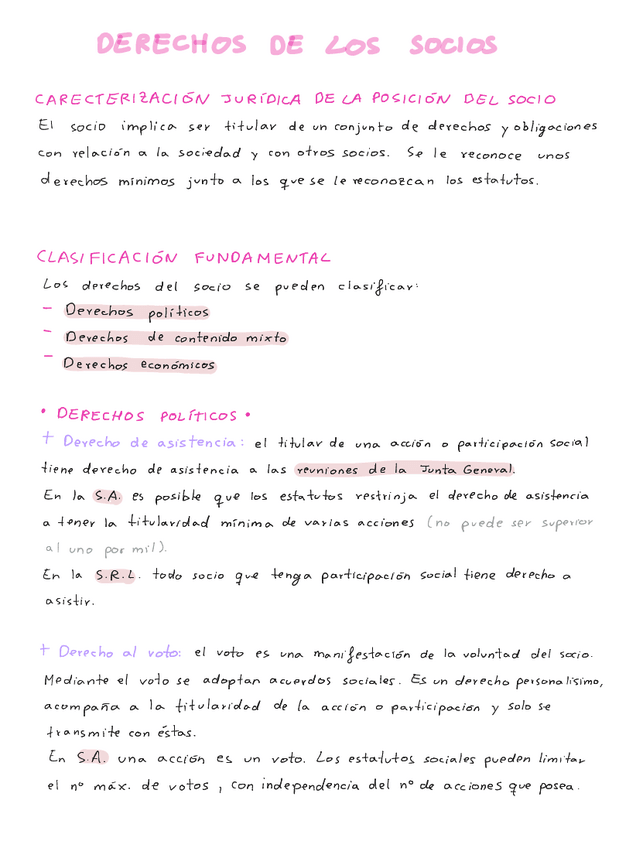 DERECHOS DE LOS SOCIOS
CARECTERIZACIÓN JURÍDICA DE LA POSICIÓN DEL SOCIO
El socio implica ser titular de un conjunto de derechos y obligaciones
con relación a la sociedad y con otros socios. Se le reconoce unos
derechos mínimos junto a los que se le reconozcan los estatutos.
CLASIFICACIÓN FUNDAMENTAL
Los derechos del socio se pueden clasificar:
- Derechos políticos
- Derechos de contenido mixto
- Derechos económicos
• DERECHOS POLÍTICOS •
+ Derecho de asistencia: el titular de una acción o participación social
tiene derecho de asistencia a las reuniones de la Junta General.
En la S.A. es posible que los estatutos restrinja el derecho de asistencia
a tener la titularidad mínima de varias acciones (no puede ser superior
al uno por mil).
En la S.R.L. todo socio que tenga participación social tiene derecho a
asistir.
+ Derecho al voto: el voto es una manifestación de la voluntad del socio.
Mediante el voto se adoptan acuerdos sociales. Es un derecho personalísimo,
acompaña a la titularidad de la acción o participación y solo se
transmite con éstas.
En S.A. una acción es un voto. Los estatutos sociales pueden limitar
el nº máx. de votos, con independencia del nº de acciones que posea.